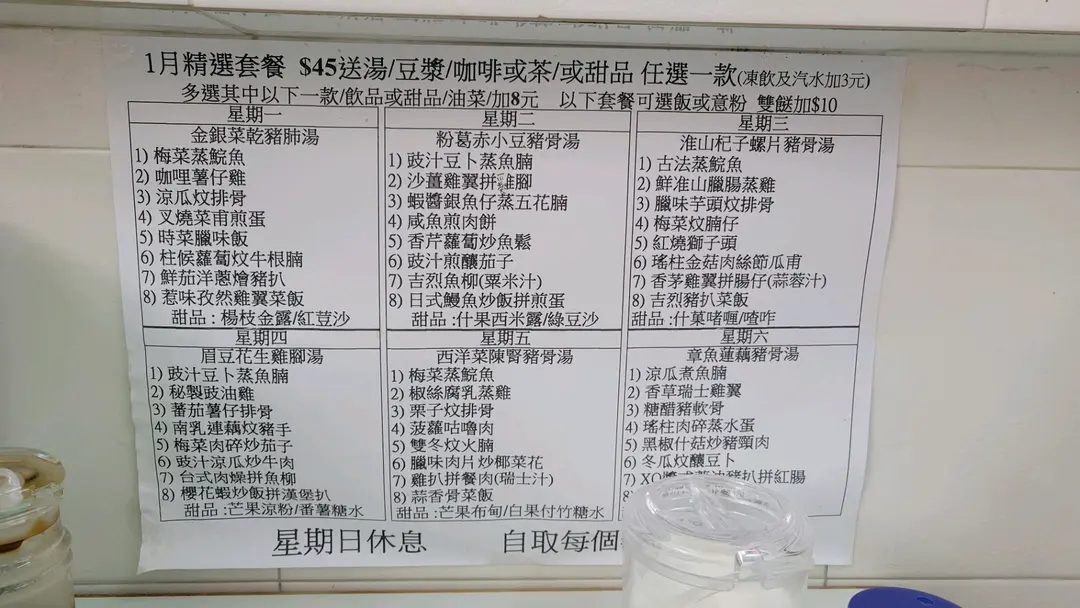 1月精選套餐 $45送湯/豆漿/咖啡或茶/或甜品 任選一款(凍飲及汽水加3元)
多選其中以下一款/飲品或甜品/油菜/加8元 以下套餐可選飯或意粉 雙餸加$10
星期一
金銀菜乾豬肺湯
1) 梅菜蒸鯇魚
2) 咖哩薯仔雞
3) 涼瓜炆排骨
4) 叉燒菜甫煎蛋
5) 時菜臘味飯
6) 柱候蘿蔔炆牛根腩
7) 鮮茄洋蔥燴豬扒
8) 惹味孜然雞翼菜飯
甜品 : 楊枝金露/紅荳沙
星期二
粉葛赤小豆豬骨湯
1) 豉汁豆卜蒸魚腩
2) 沙薑雞翼拼雞腳
3) 蝦醬銀魚仔蒸五花腩
4) 咸魚煎肉餅
5) 香芹蘿蔔炒魚鬆
6) 豉汁煎釀茄子
7) 吉烈魚柳(粟米汁)
8) 日式鰻魚炒飯拼煎蛋
甜品 :什果西米露/綠豆沙
星期三
淮山杞子螺片豬骨湯
1) 古法蒸鯇魚
2) 鮮准山臘腸蒸雞
3) 臘味芋頭炆排骨
4) 梅菜炆腩仔
5) 紅燒獅子頭
6) 瑤柱金菇肉絲節瓜甫
7) 香茅雞翼拼腸仔(蒜蓉汁)
8) 吉烈豬扒菜飯
甜品 :什菓啫喱/喳咋
星期四
眉豆花生雞腳湯
1) 豉汁豆卜蒸魚腩
2) 秘製豉油雞
3) 蕃茄薯仔排骨
4) 南乳連藕炆豬手
5) 梅菜肉碎炒茄子
6) 豉汁涼瓜炒牛肉
7) 台式肉燥拼魚柳
8) 櫻花蝦炒飯拼漢堡扒
甜品 :芒果涼粉/番薯糖水
星期五
西洋菜陳腎豬骨湯
1) 梅菜蒸鯇魚
2) 椒絲腐乳蒸雞
3) 栗子炆排骨
4) 菠蘿咕嚕肉
5) 雙冬炆火腩
6) 臘味肉片炒椰菜花
7) 雞扒拼餐肉(瑞士汁)
8) 蒜香骨菜飯
甜品 :芒果布甸/白果付竹糖水
星期六
章魚蓮藕豬骨湯
1) 涼瓜煮魚腩
2) 香草瑞士雞翼
3) 糖醋豬軟骨
4) 瑤柱肉碎蒸水蛋
5) 黑椒什菇炒豬頸肉
6) 冬瓜炆釀豆卜
7) XO醬豬扒拼紅腸
8)
星期日休息 自取每個